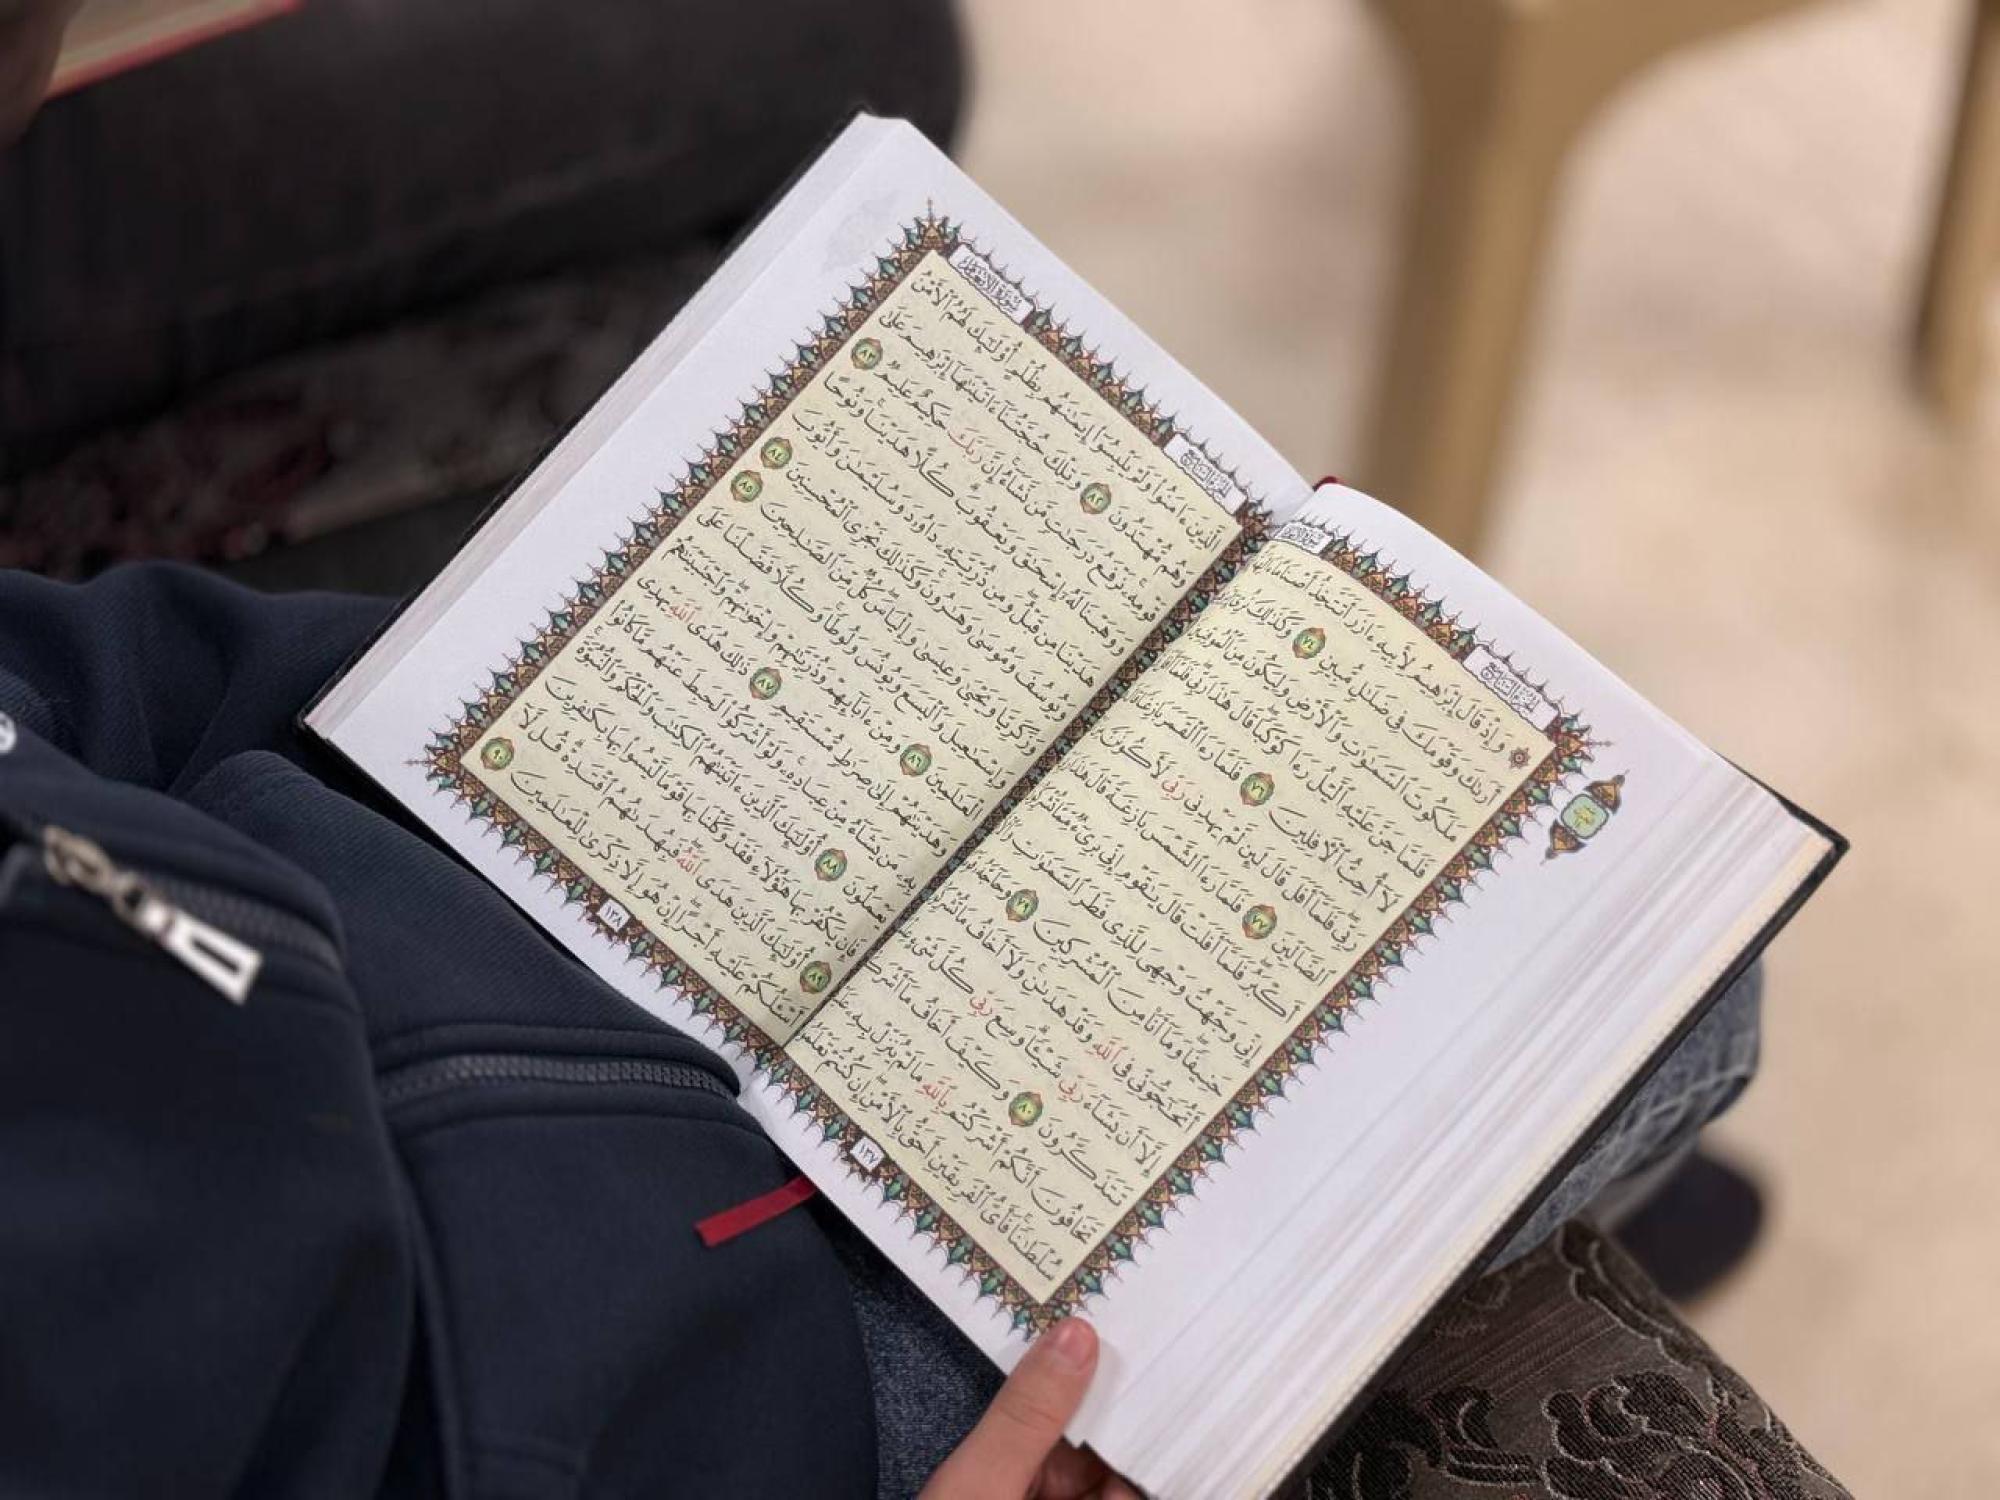 سُورَةُ الأَنْعَام
الجُزْءُ السَّابِع
۞ وَإِذْ قَالَ إِبْرَٰهِيمُ لِأَبِيهِ ءَازَرَ أَتَتَّخِذُ أَصْنَامًا
أَرَىٰكَ وَقَوْمَكَ فِى ضَلَٰلٍ مُّبِينٍ ٧٤ وَكَذَٰلِكَ نُرِىٓ
مَلَكُوتَ ٱلسَّمَٰوَٰتِ وَٱلْأَرْضِ وَلِيَكُونَ مِنَ ٱلْمُوقِنِينَ
فَلَمَّا جَنَّ عَلَيْهِ ٱلَّيْلُ رَءَا كَوْكَبًا قَالَ هَٰذَا رَبِّى فَلَمَّآ
لَآ أُحِبُّ ٱلْءَافِلِينَ ٧٦ فَلَمَّا رَءَا ٱلْقَمَرَ بَازِغًا
رَبِّى فَلَمَّآ أَفَلَ قَالَ لَئِن لَّمْ يَهْدِنِى رَبِّى لَأَكُونَنَّ
ٱلضَّآلِّينَ ٧٧ فَلَمَّا رَءَا ٱلشَّمْسَ بَازِغَةً قَالَ هَٰذَا
أَكْبَرُ فَلَمَّآ أَفَلَتْ قَالَ يَٰقَوْمِ إِنِّى بَرِىٓءٌ مِّمَّا تُشْرِكُونَ
إِنِّى وَجَّهْتُ وَجْهِىَ لِلَّذِى فَطَرَ ٱلسَّمَٰوَٰتِ
حَنِيفًا وَمَآ أَنَا۠ مِنَ ٱلْمُشْرِكِينَ ٧٩ وَحَآجَّهُۥ
أَتُحَٰٓجُّوٓنِّى فِى ٱللَّهِ وَقَدْ هَدَىٰنِ وَلَآ أَخَافُ مَا تُشْرِكُونَ
إِلَّآ أَن يَشَآءَ رَبِّى شَيْـًٔا وَسِعَ رَبِّى كُلَّ شَىْءٍ
تَتَذَكَّرُونَ ٨٠ وَكَيْفَ أَخَافُ مَآ أَشْرَكْتُمْ
تَخَافُونَ أَنَّكُمْ أَشْرَكْتُم بِٱللَّهِ مَا لَمْ يُنَزِّلْ بِهِۦ
سُلْطَٰنًا فَأَىُّ ٱلْفَرِيقَيْنِ أَحَقُّ بِٱلْأَمْنِ إِن كُنتُمْ تَعْلَمُونَ
١٣٧
الجُزْءُ السَّابِع
سُورَةُ الأَنْعَام
ٱلَّذِينَ ءَامَنُوا۟ وَلَمْ يَلْبِسُوٓا۟ إِيمَٰنَهُم بِظُلْمٍ أُو۟لَٰٓئِكَ لَهُمُ ٱلْأَمْنُ
وَهُم مُّهْتَدُونَ ٨٢ وَتِلْكَ حُجَّتُنَآ ءَاتَيْنَٰهَآ إِبْرَٰهِيمَ عَلَىٰ
قَوْمِهِۦ نَرْفَعُ دَرَجَٰتٍ مَّن نَّشَآءُ إِنَّ رَبَّكَ حَكِيمٌ عَلِيمٌ ٨٣
وَوَهَبْنَا لَهُۥٓ إِسْحَٰقَ وَيَعْقُوبَ كُلًّا هَدَيْنَا وَنُوحًا
هَدَيْنَا مِن قَبْلُ وَمِن ذُرِّيَّتِهِۦ دَاوُۥدَ وَسُلَيْمَٰنَ وَأَيُّوبَ
وَيُوسُفَ وَمُوسَىٰ وَهَٰرُونَ وَكَذَٰلِكَ نَجْزِى ٱلْمُحْسِنِينَ ٨٤
وَزَكَرِيَّا وَيَحْيَىٰ وَعِيسَىٰ وَإِلْيَاسَ كُلٌّ مِّنَ ٱلصَّٰلِحِينَ ٨٥
وَإِسْمَٰعِيلَ وَٱلْيَسَعَ وَيُونُسَ وَلُوطًا وَكُلًّا فَضَّلْنَا عَلَى
ٱلْعَٰلَمِينَ ٨٦ وَمِنْ ءَابَآئِهِمْ وَذُرِّيَّٰتِهِمْ وَإِخْوَٰنِهِمْ وَٱجْتَبَيْنَٰهُمْ
وَهَدَيْنَٰهُمْ إِلَىٰ صِرَٰطٍ مُّسْتَقِيمٍ ٨٧ ذَٰلِكَ هُدَى ٱللَّهِ يَهْدِى
بِهِۦ مَن يَشَآءُ مِنْ عِبَادِهِۦ وَلَوْ أَشْرَكُوا۟ لَحَبِطَ عَنْهُم مَّا كَانُوا۟
يَعْمَلُونَ ٨٨ أُو۟لَٰٓئِكَ ٱلَّذِينَ ءَاتَيْنَٰهُمُ ٱلْكِتَٰبَ وَٱلْحُكْمَ وَٱلنُّبُوَّةَ
فَإِن يَكْفُرْ بِهَا هَٰٓؤُلَآءِ فَقَدْ وَكَّلْنَا بِهَا قَوْمًا لَّيْسُوا۟ بِهَا بِكَٰفِرِينَ
٨٩ أُو۟لَٰٓئِكَ ٱلَّذِينَ هَدَى ٱللَّهُ فَبِهُدَىٰهُمُ ٱقْتَدِهْ قُل لَّآ
أَسْـَٔلُكُمْ عَلَيْهِ أَجْرًا إِنْ هُوَ إِلَّا ذِكْرَىٰ لِلْعَٰلَمِينَ ٩٠
١٣٨